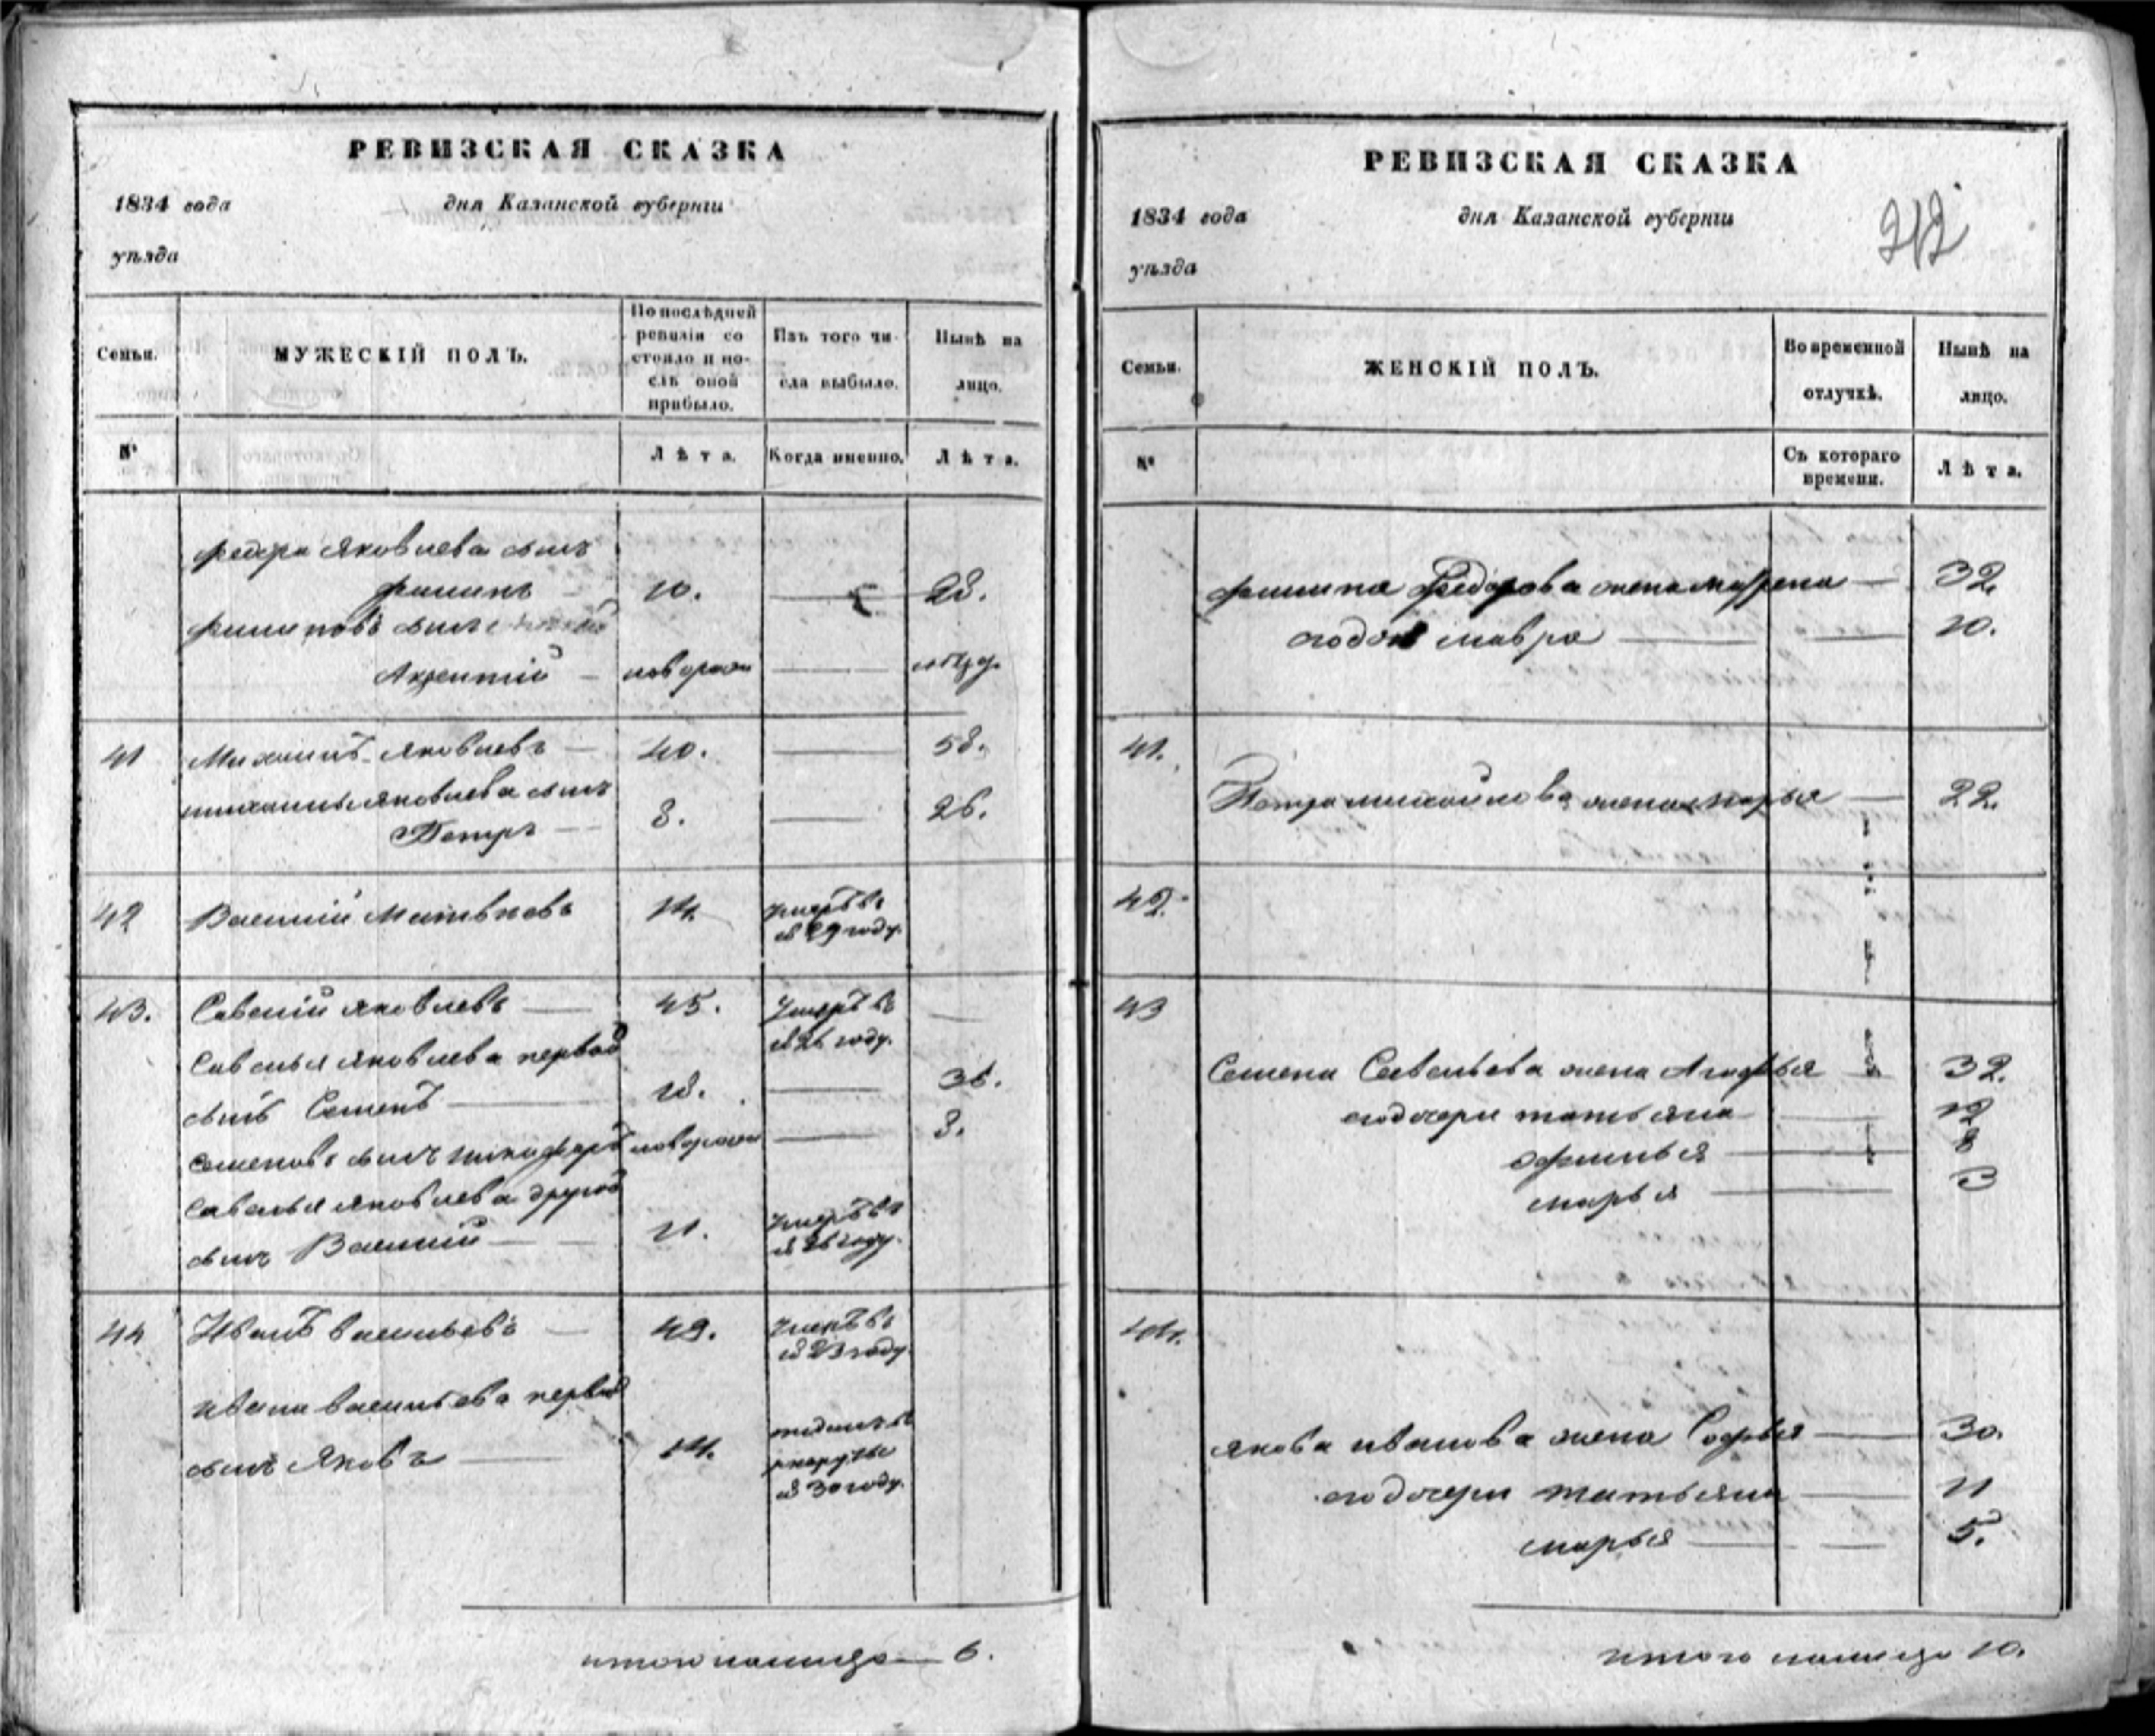 РЕВИЗСКАЯ СКАЗКА
1834 года дня Казанской губерніи
уѣзда
Семьи. МУЖЕСКІЙ ПОЛЪ. По послѣдней ревизіи состояло и послѣ оной прибыло. Изъ того числа выбыло. Нынѣ на лицо.
№ Лѣта. Когда именно. Лѣта.
Федора Яковлева сынъ
Филипъ 10. 28.
Филиповъ сынъ
новорож
41 Михаилъ Яковлевъ 40. 58.
Михаилы Яковлева сынъ
Петръ 8. 26.
42 Василій Матвѣевъ 14. Умеръ въ
29 году.
43. Савелій Яковлевъ 45. Умеръ въ
26 году.
Савелья Яковлева первой
сынъ Семенъ 18. 36.
Семеновъ сынъ Никифоръ новорож 3.
Савелья Яковлева другой
сынъ Василій 11. Умеръ въ
26 году.
44 Иванъ Васильевъ 49. Умеръ въ
23 году.
Ивана Васильева первой
сынъ Яковъ 14. отданъ въ
рекруты
в 30 году.
итого налицо 6.
РЕВИЗСКАЯ СКАЗКА
1834 года дня Казанской губерніи
212
уѣзда
Семьи. ЖЕНСКІЙ ПОЛЪ. Во временной отлучкѣ. Нынѣ на лицо.
№ Съ котораго времени. Лѣта.
Филипа Федорова жена 32.
его дочь Мавра 10.
41. Петра Михайлова жена Марья 22.
42.
43
Семена Савельева жена Агафья 32.
его дочери Татьяна 12
Офимья 8
Марья 3
44.
Якова Иванова жена Софья 30.
его дочери Татьяна 11
Марья 5.
итого налицо 10.